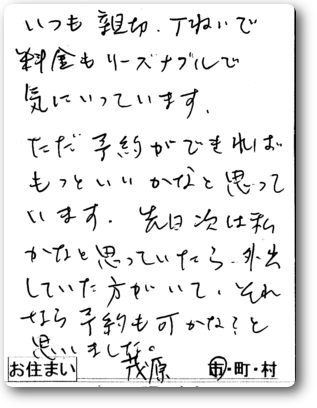 いつも親切、丁ねいで
料金もリーズナブルで
気にいっています。
ただ予約ができれば
もっといいかなと思って
います。先日次は私
かなと思っていたら、外出
していた方がいて、それ
なら予約も可かな?と
思いました。
お住まい 茂原 市・町・村